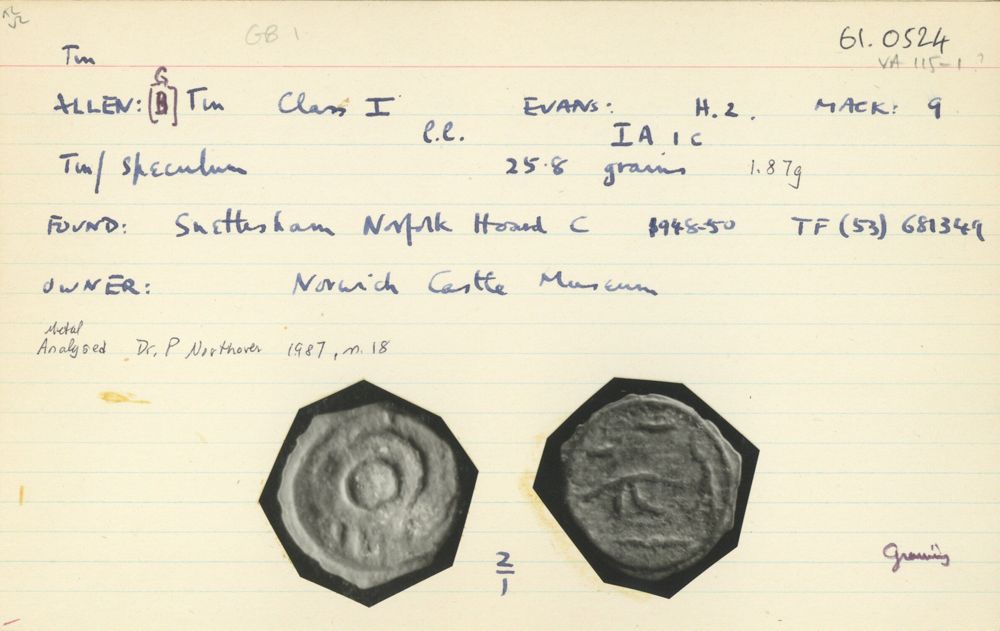 GB 1
61.0524
Tin
VA 115-1 ?
G
ALLEN: [B] Tin Class I EVANS: H.2. MACK: 9
l.l. IA 1c
Tin/ Speculum 25.8 grains 1.87g
FOUND: Snettesham Norfolk Hoard C 1948-50 TF (53) 681349
OWNER: Norwich Castle Museum
Metal
Analysed Dr. P Northover 1987, n. 18
2
1